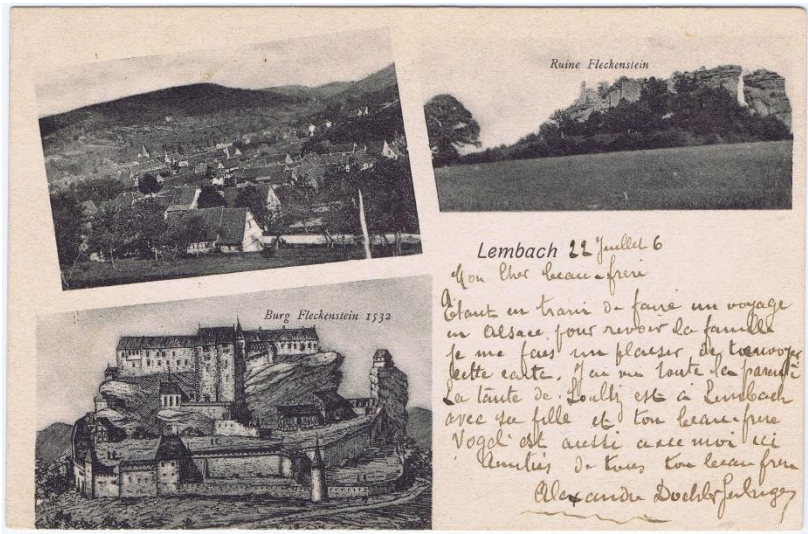 Ruine Fleckenstein
Burg Fleckenstein 1532
Lembach 22 Juillet 6
Mon Cher beau-frère
Etant en train de faire un voyage
en Alsace pour revoir la famille
je me fais un plaisir de
cette carte. J'ai vu toute la parenté
La tante de Soultz est à Lembach
avec sa fille et ton beau-frère
Vogel est aussi avec moi ici
Amitiés de tous ton beau frère
Alexandre